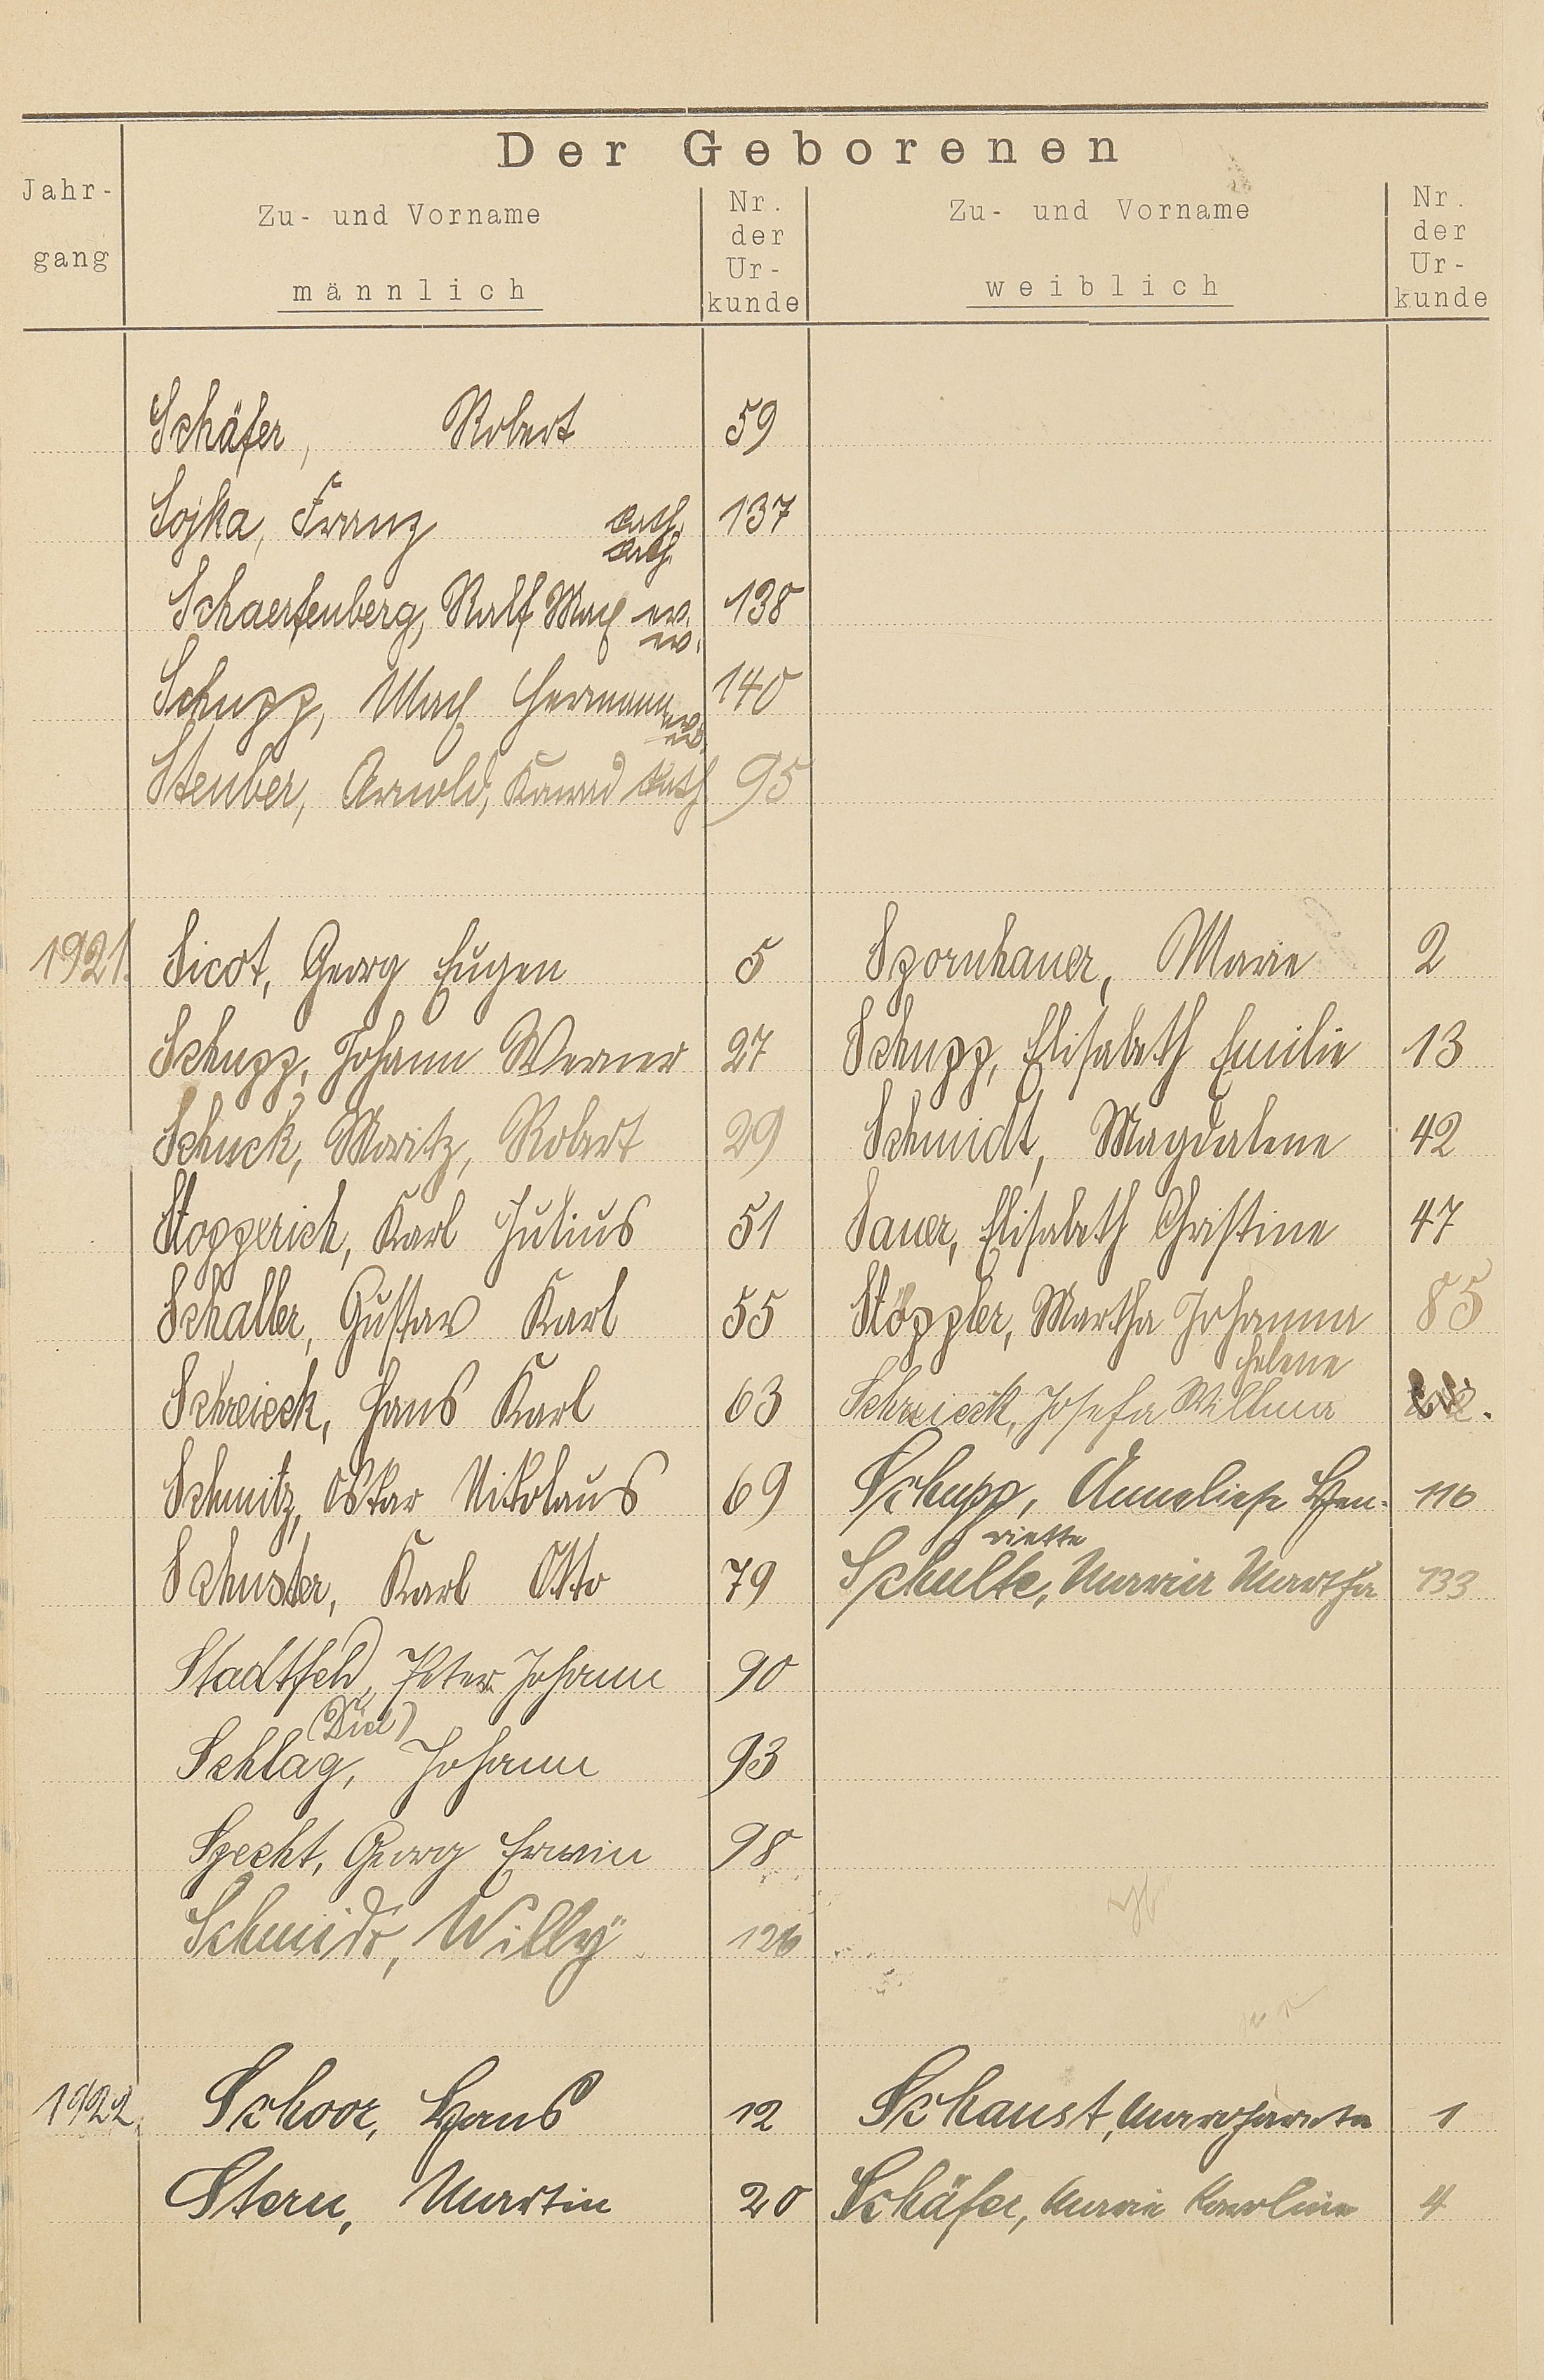 Der Geborenen
Jahr-
gang
Zu- und Vorname
männlich
Nr.
der
Ur-
kunde
Zu- und Vorname
weiblich
Nr.
der
Ur-
kunde
Schäfer, Robert 59
Sojka, Franz kath. 137
kath.
Schaerfenberg, Ralf Max ev. 138
ev.
Schupp, Max Hermann ev. 140
ev.
Steuber, Arnold, Konrad kath 95
1921. Sicot, Georg Eugen 5 Spornhauer, Marie 2
Schupp, Johann Werner 27 Schupp, Elisabeth Emilie 13
Schuck, Moritz, Robert 29 Schmidt, Magdalene 42
Stopperich, Karl Julius 51 Sauer, Elisabeth Christine 47
Schaller, Gustav Karl 55 Stöppler, Martha Johanna 85
Helene
Schreieck, Hans Karl 63 Schreieck, Josefa Wilhma
Schmitz, Oskar Nikolaus 69 Schupp, Anneliese Hen- 116
riette
Schuster, Karl Otto 79 Schulte, Maria Martha 133
Stadtfeld, Peter Johann 90
(Diel)
Schlag, Johann 93
Specht, Georg Erwin 98
Schmidt, Willy 126
1922. Schoor, Hans 12 Schaust, Margareta 1
Stern, Martin 20 Schäfer, Marie Karoline 4